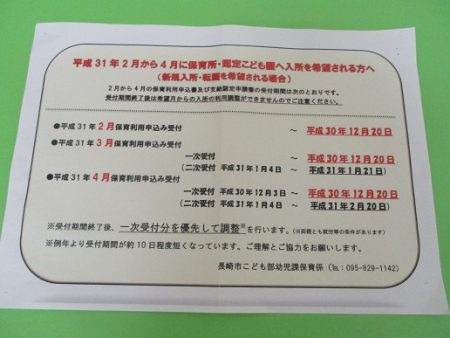 平成31年2月から4月に保育所・認定こども園へ入所を希望される方へ
（新規入所・転園を希望される場合）
2月から4月の保育利用申込書及び支給認定申請書の受付期間は次のとおりです。
受付期間終了後は希望月からの入所の利用調整ができませんのでご注意ください。
●平成31年2月保育利用申込み受付 ～ 平成30年12月20日
●平成31年3月保育利用申込み受付
一次受付 ～ 平成30年12月20日
（二次受付 平成31年1月4日 ～ 平成31年1月21日）
●平成31年4月保育利用申込み受付
一次受付 平成30年12月3日 ～ 平成30年12月20日
（二次受付 平成31年1月4日 ～ 平成31年2月20日）
※受付期間終了後、一次受付分を優先して調整※を行います。（※両親とも就労等の条件があります）
※例年より受付期間が約10日程度短くなっています。ご理解とご協力をお願いします。
長崎市こども部幼児課保育係（℡：095-829-1142）